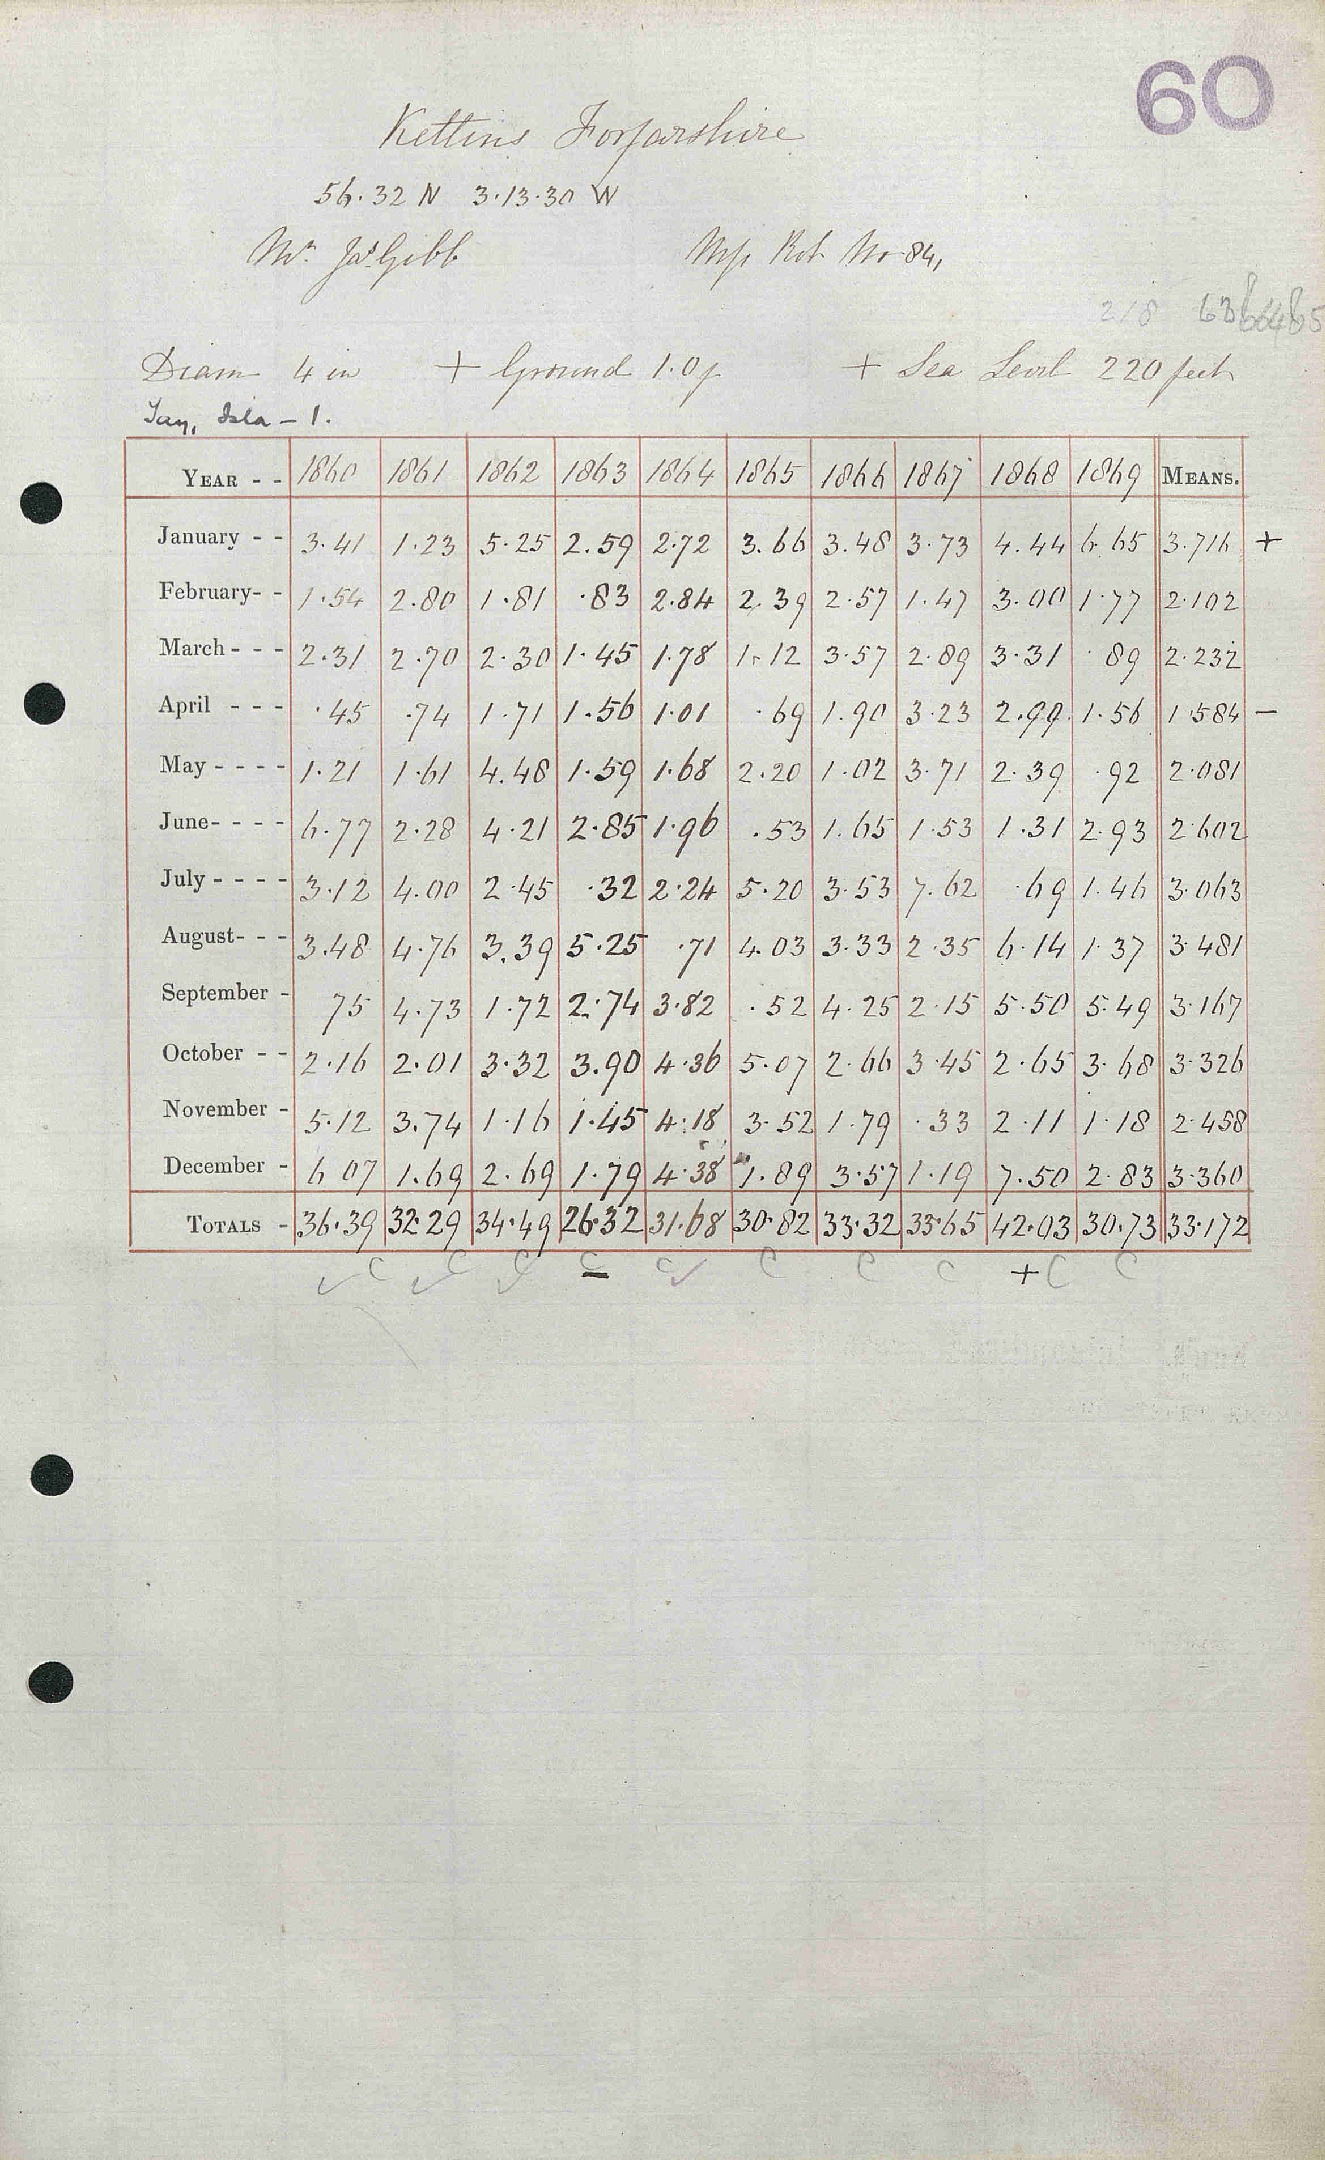 60
Kettins Forfarshire
56.32 N 3.13.30 W
Mr Jas Gibb Rot No 84,
218 63 64 65
Diam 4 in + Ground 1.0 f + Sea Level 220 feet
Tay, Isla - 1.
YEAR - - 1860 1861 1862 1863 1864 1865 1866 1867 1868 1869 MEANS.
January - - 3.41 1.23 5.25 2.59 2.72 3.66 3.48 3.73 4.44 6.65 3.716 +
February- - 1.54 2.80 1.81 .83 2.84 2.39 2.57 1.47 3.00 1.77 2.102
March - - - 2.31 2.70 2.30 1.45 1.78 1.12 3.57 2.89 3.31 .89 2.232
April - - - .45 .74 1.71 1.56 1.01 .69 1.90 3.23 2.99 1.56 1.584 -
May - - - - 1.21 1.61 4.48 1.59 1.68 2.20 1.02 3.71 2.39 .92 2.081
June- - - - 6.77 2.28 4.21 2.85 1.96 .53 1.65 1.53 1.31 2.93 2.602
July - - - - 3.12 4.00 2.45 .32 2.24 5.20 3.53 7.62 .69 1.46 3.063
August- - - 3.48 4.76 3.39 5.25 .71 4.03 3.33 2.35 6.14 1.37 3.481
September - 75 4.73 1.72 2.74 3.82 .52 4.25 2.15 5.50 5.49 3.167
October - - 2.16 2.01 3.32 3.90 4.36 5.07 2.66 3.45 2.65 3.68 3.326
November - 5.12 3.74 1.16 1.45 4.18 3.52 1.79 .33 2.11 1.18 2.458
December - 6 07 1.69 2.69 1.79 4.38 1.89 3.57 1.19 7.50 2.83 3.360
TOTALS - 36.39 32.29 34.49 26.32 31.68 30.82 33.32 33.65 42.03 30.73 33.172
✓ C ✓ C ✓ C C - C ✓ C C C + C C